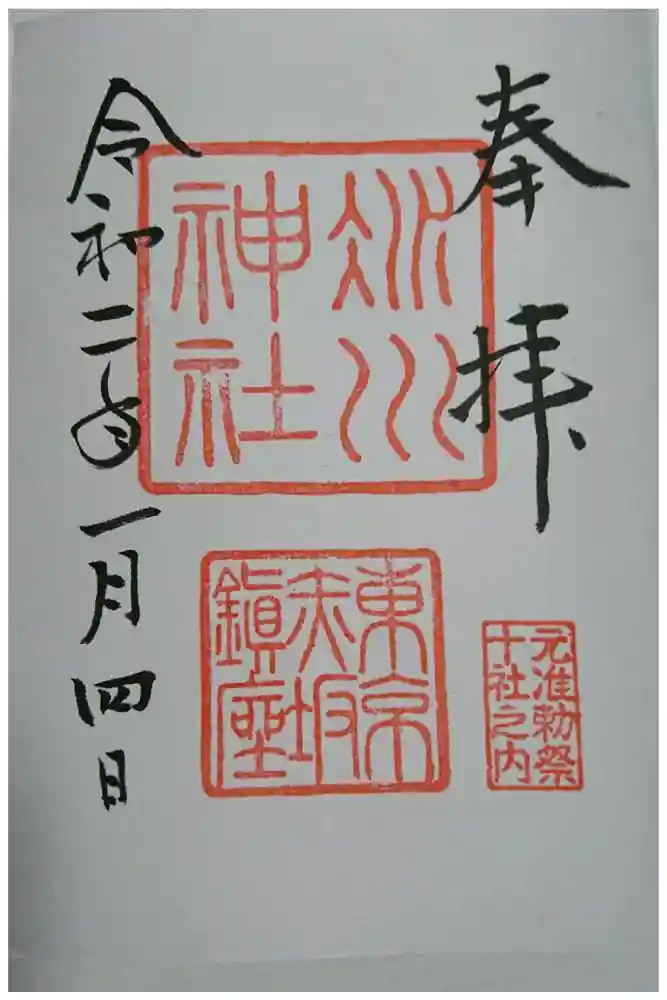 奉拝
元准勅祭
十社之内
氷川
神社
東京
赤坂
鎮座
令和二年一月四日